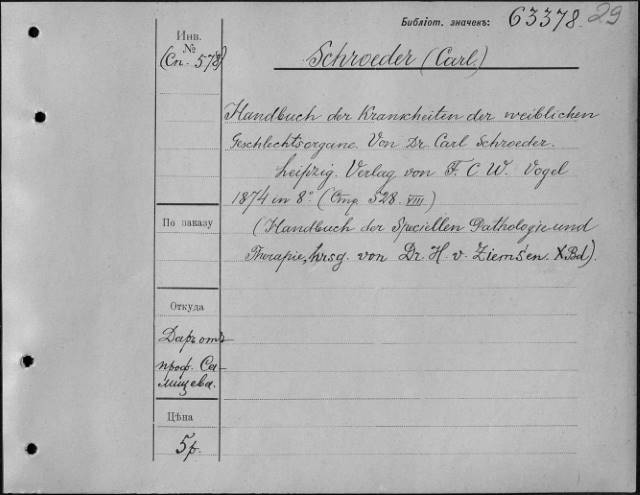 Библіот. значекъ: 63378. 29
Инв.
№
(Сп. 578)
Schroeder (Carl.)
Handbuch der Krankheiten der weiblichen
Geschlechtsorgane. Von Dr. Carl Schroeder.
Leipzig. Verlag von F. C. W. Vogel
1874 in 8° (Стр. 528. VIII.)
По заказу
(Handbuch der Speciellen Pathologie und
Therapie, hrsg. von Dr. H. v. Ziemsen. X Bd).
Откуда
Даръ отъ
проф. Са-
мищева.
Цѣна
5 р.